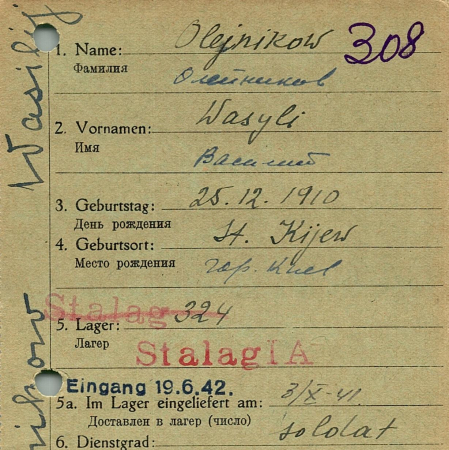 308
1. Name: Olejnikow
Фамилия Олейников
2. Vornamen: Wasyli
Имя Василий
3. Geburtstag: 25.12.1910
День рождения
4. Geburtsort: St. Kijew
Место рождения гор. Киев
Stalag 324
5. Lager:
Лагер
Stalag IA
Eingang 19.6.42.
5a. Im Lager eingeliefert am: 3/X-41
Доставлен в лагер (число)
6. Dienstgrad: soldat
Wasilij